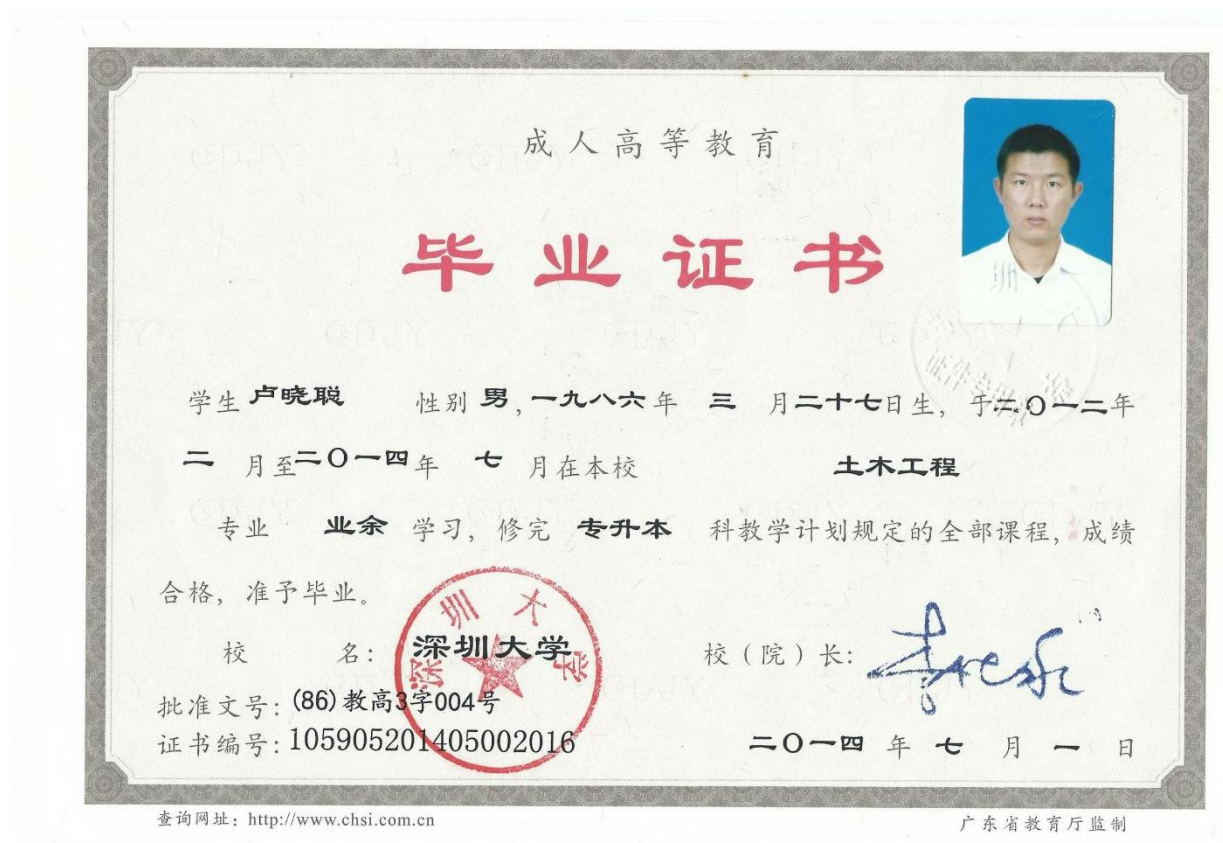 成人高等教育
毕业证书
学生 卢晓聪 性别 男,一九八六年 三 月二十七日生, 于二〇一二年
二 月至二〇一四年 七 月在本校 土木工程
专业 业余 学习, 修完 专升本 科教学计划规定的全部课程, 成绩
合格, 准予毕业。
校 名: 深圳大学 校(院)长:
深圳大学
批准文号: (86)教高3字004号
证书编号: 105905201405002016 二〇一四 年 七 月 一 日
查询网址: http://www.chsi.com.cn 广东省教育厅监制